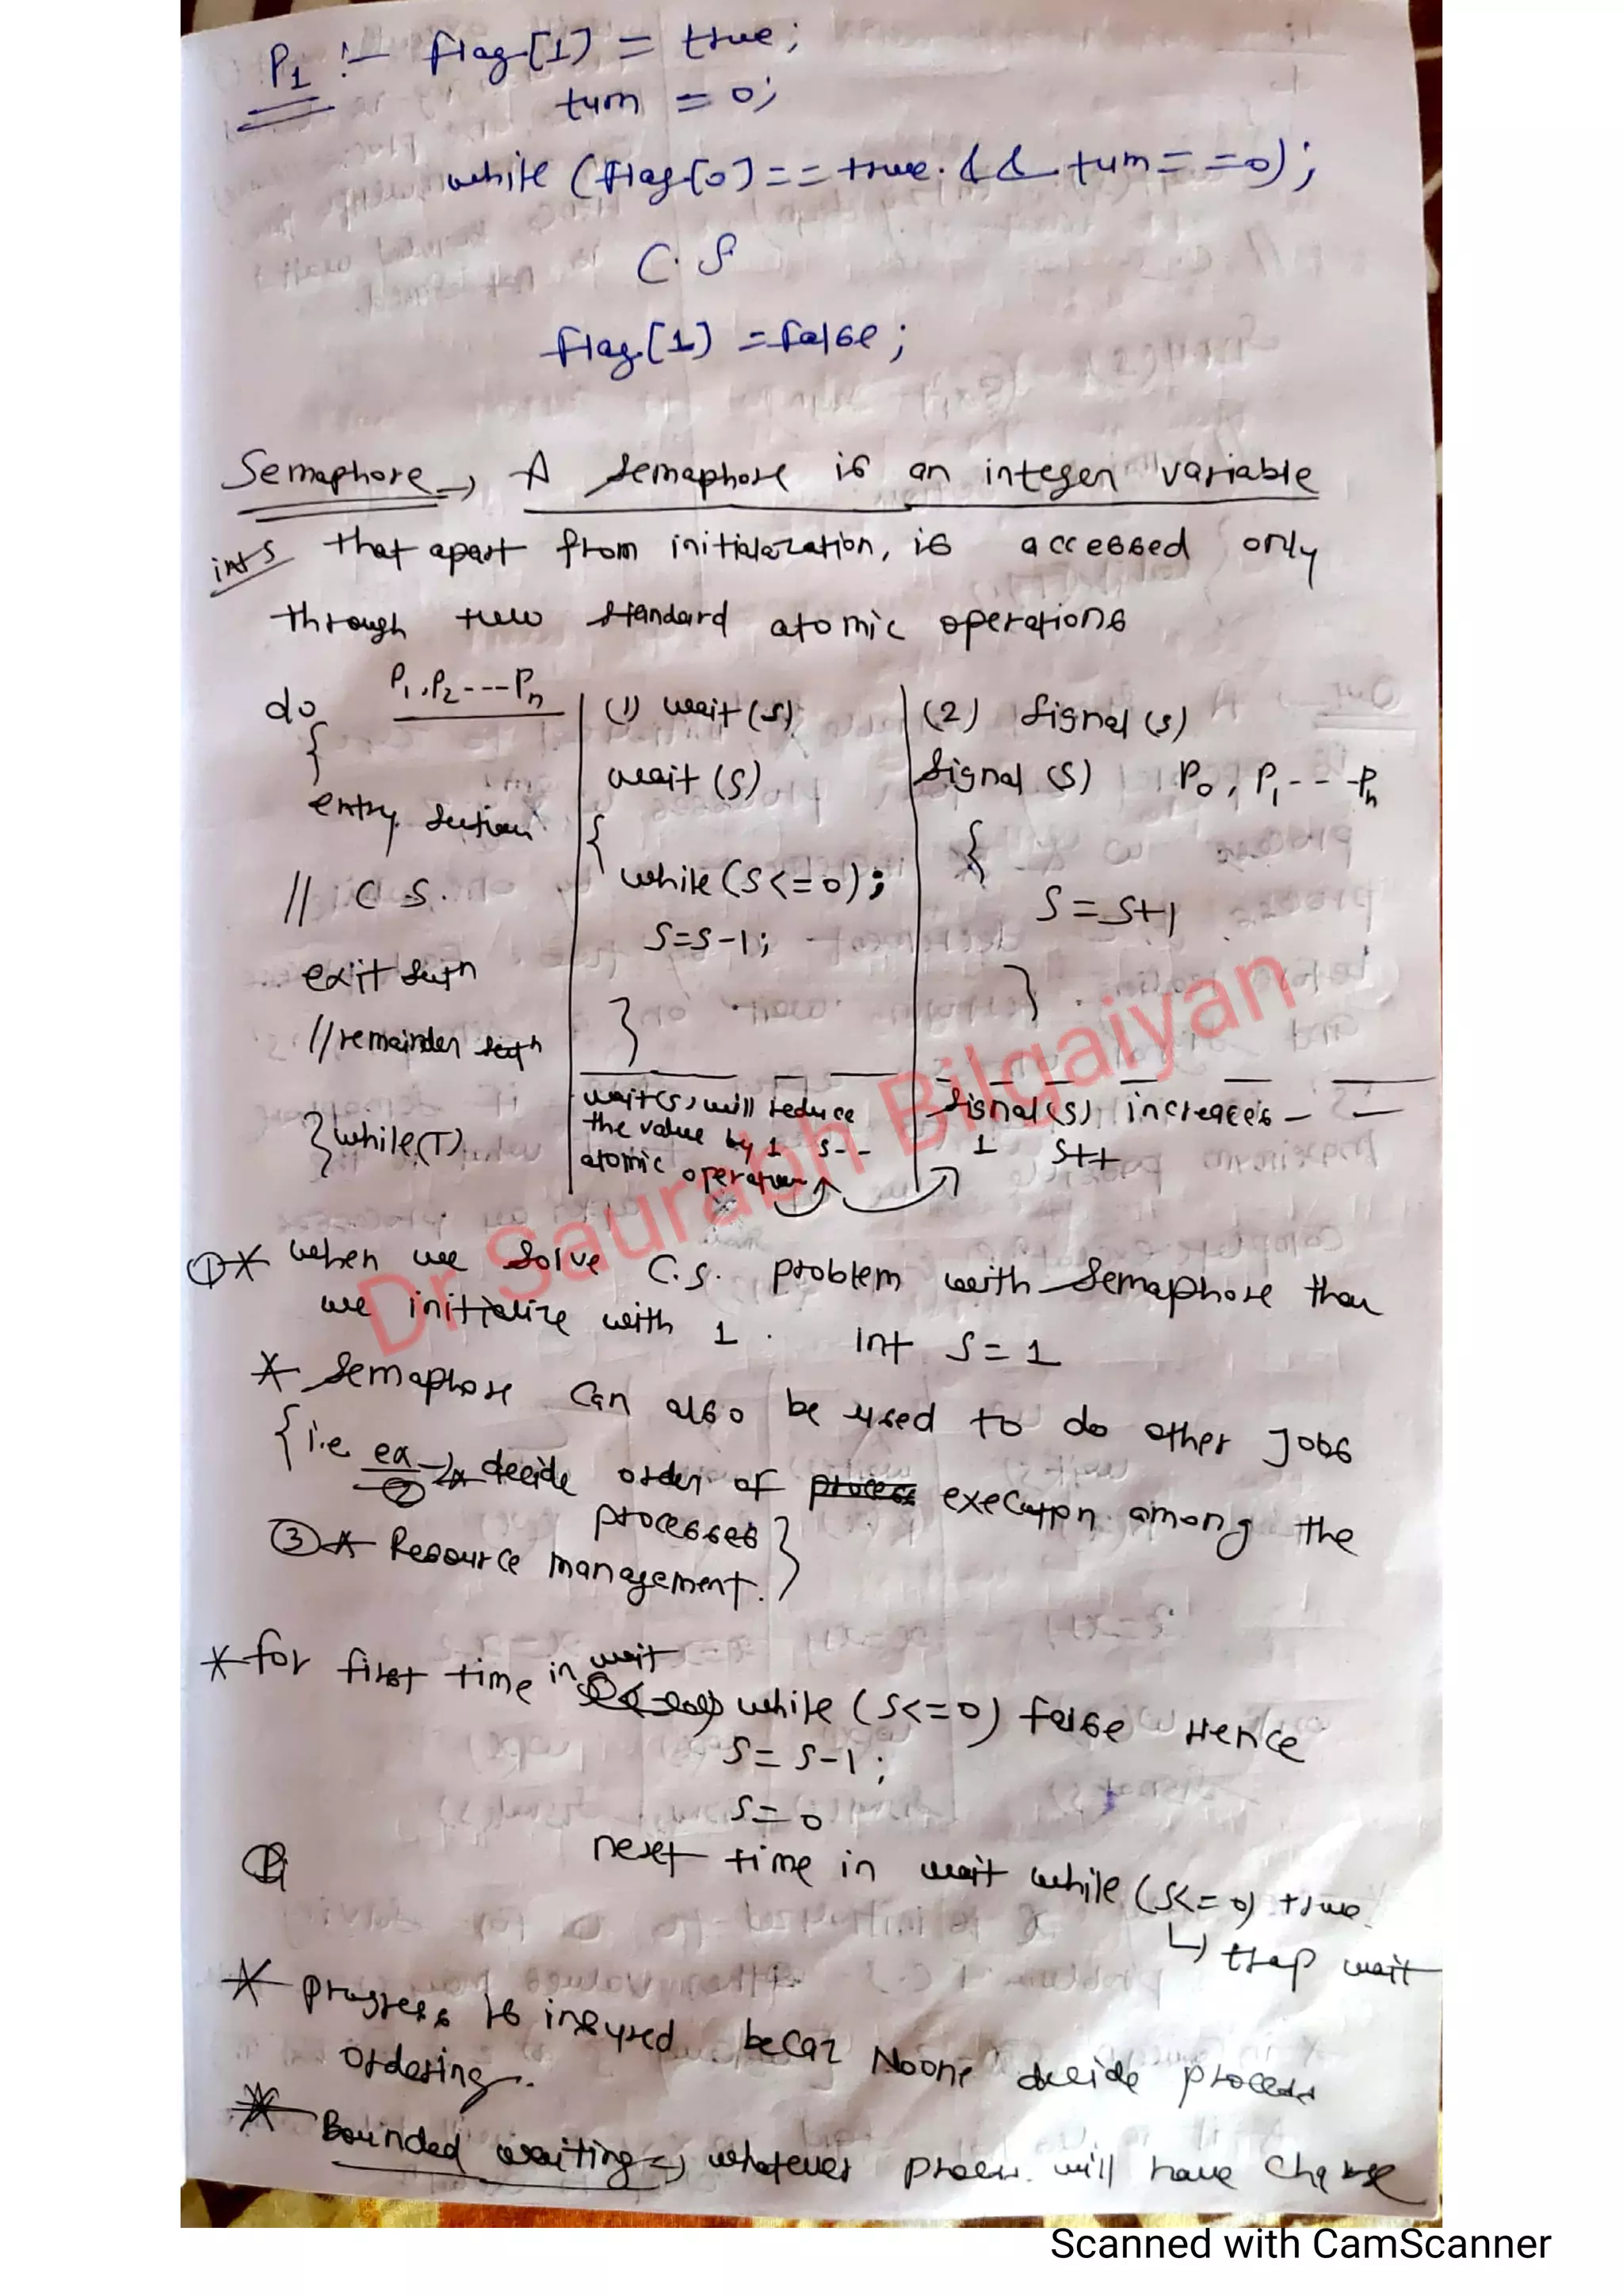 P1 :- flag[1] = true;
turn = 0;
while (flag[0]==true && turn==0);
C.S
flag[1] = false;
Semaphore → A semaphore is an integer variable
int S that apart from initialazation, is accessed only
through two standard atomic operations
do P1, P2 --- Pn
{
entry section
// C.S.
exit sectn
// remainder sectn
} while(T)
(1) wait(s)
wait (S)
{
while (S<=0);
S=S-1;
}
wait(s) will reduce
the value by 1 S--
atomic operation
(2) Signal (s)
Signal (S) P0, P1 --- Pn
{
S = S+1
}
Signal(s) increases
1 S++
① * when we solve C.S. problem with Semaphore than
we initialize with 1. int S=1
* Semaphore can also be used to do other Jobs
{ i.e ex → ② * decide order of process execution among the
processes
③ * Resource management. }
* for first time in wait while (S<=0) false Hence
S = S-1;
S = 0
next time in wait while (S<=0) true
↳ trap wait
* progress is insured becaz Noone decide process
ordering.
* Bounded waiting → whatever process will have
Dr Saurabh Bilgaiyan
Scanned with CamScanner